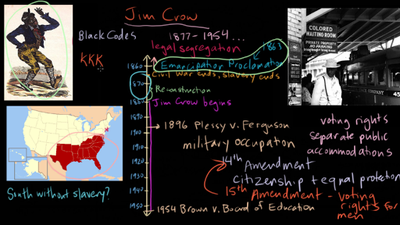 Jim Crow
Black Codes
1877-1954...
legal segregation
1863
KKK
1860
Emancipation Proclamation
Civil war ends, slavery ends
1870
Reconstruction
1880
Jim Crow begins
1890
1896 Plessy v. Ferguson
1900
military occupation
1910
14th
Amendment
1920
citizenship + equal protection
1930
15th
Amendment - voting
rights for
men
1940
1950
1954 Brown v. Board of Education
South without slavery?
COLORED
WAITING ROOM
PRIVATE PROPERTY
NO PARKING
voting rights
separate public
accommodations